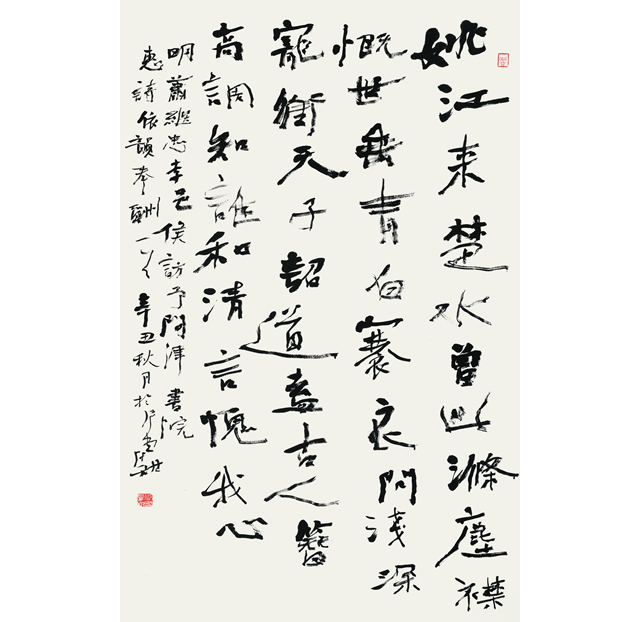 姚江来楚水曾此滌塵襟
慨世無青白褰衣問淺深
寵銜天子詔道盍古人簪
高調知誰和清言愧我心
明蕭繼忠李邑侯訪予問津書院
惠詩依韻奉酬一首辛丑秋月於